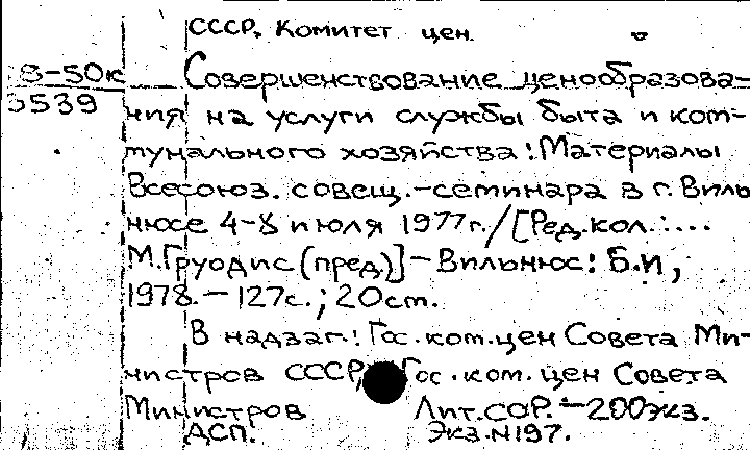 СССР, Комитет цен.
Совершенствование ценообразова-
3539
ния на услуги службы быта и ком-
мунального хозяйства: Материалы
Всесоюз. совещ.-семинара в г. Виль-
нюсе 4-8 июля 1977г./[Ред.кол.:...
М.Груодис (пред)]-Вильнюс: Б.И,
1978.-127с.; 20см.
В надзаг.: Гос.ком.цен Совета Ми-
нистров СССР, Гос.ком.цен Совета
Министров Лит.ССР.-200экз.
ДСП. Экз.N197.